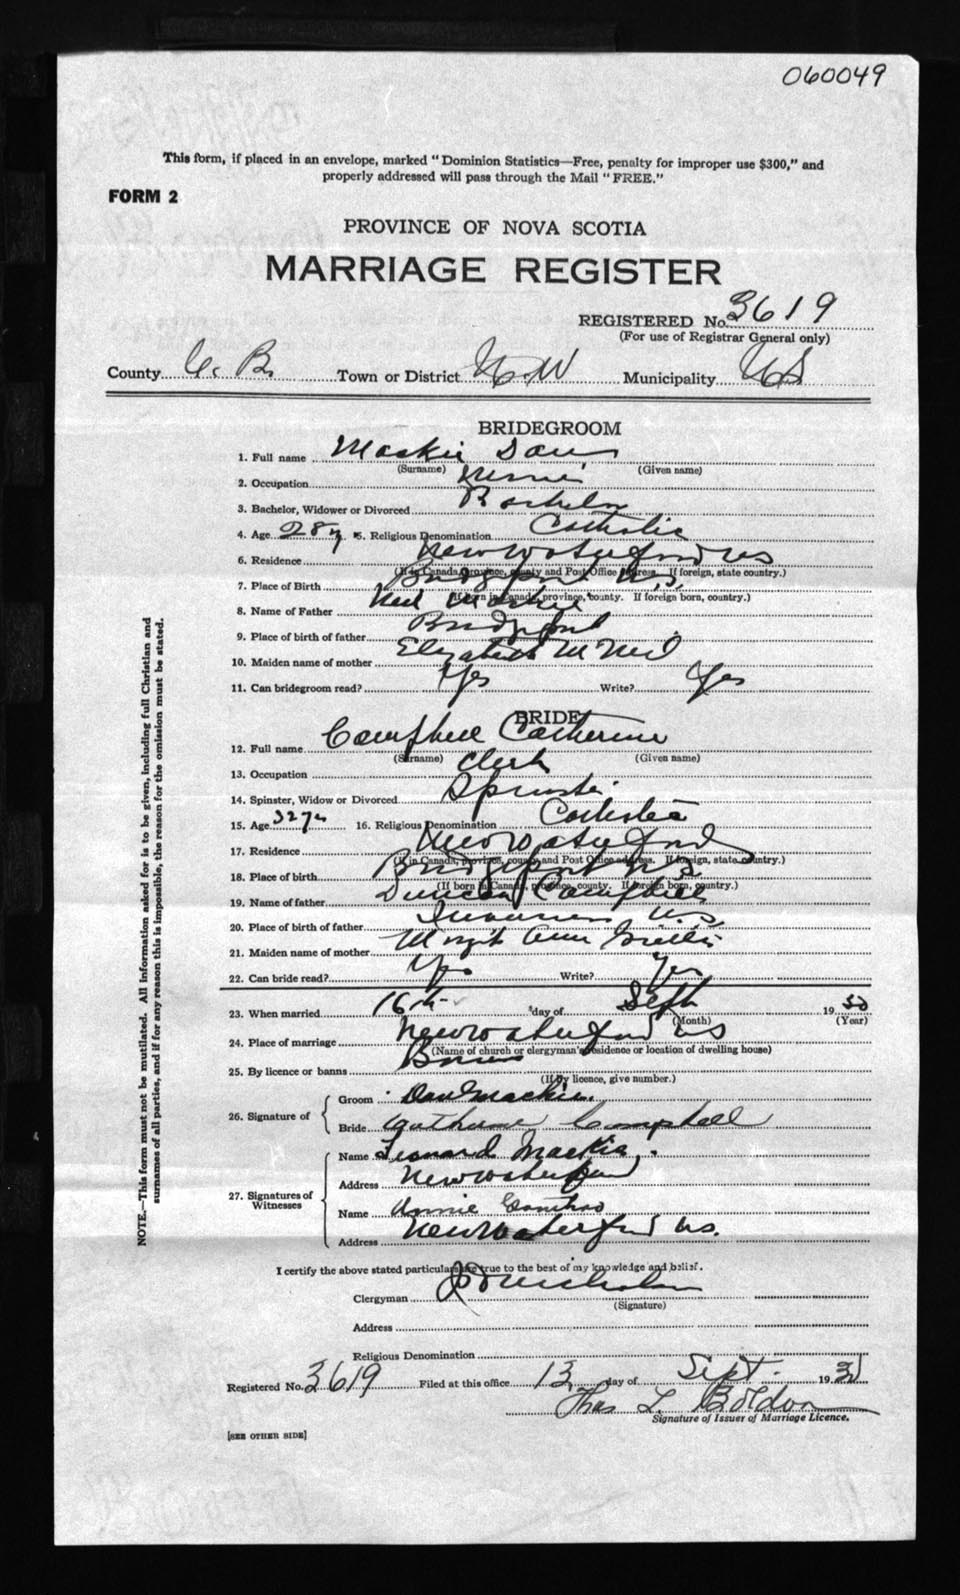 060049
This form, if placed in an envelope, marked "Dominion Statistics—Free, penalty for improper use $300," and
properly addressed will pass through the Mail "FREE."
FORM 2
PROVINCE OF NOVA SCOTIA
MARRIAGE REGISTER
REGISTERED No. 3619
(For use of Registrar General only)
County C. B. Town or District N. W Municipality NS
BRIDEGROOM
1. Full name Mackie Dan
(Surname) (Given name)
2. Occupation Miner
3. Bachelor, Widower or Divorced Bachelor
4. Age 28 y 5. Religious Denomination Catholic
6. Residence New Waterford NS
(If in Canada, province, county and Post Office address. If foreign, state country.)
7. Place of Birth Bridgeport N.S.
(If born in Canada, province, county. If foreign born, country.)
8. Name of Father Neil Mackie
9. Place of birth of father Bridgeport
10. Maiden name of mother Elizabeth McNeil
11. Can bridegroom read? Yes Write? Yes
BRIDE
12. Full name Campbell Catherine
(Surname) (Given name)
13. Occupation Clerk
14. Spinster, Widow or Divorced Spinster
15. Age 32 yr 16. Religious Denomination Catholic
17. Residence New Waterford
(If in Canada, province, county and Post Office address. If foreign, state country.)
18. Place of birth Bridgeport N S
(If born in Canada, province, county. If foreign born, country.)
19. Name of father Duncan Campbell
20. Place of birth of father Inverness N.S.
21. Maiden name of mother Margt Ann Gillis
22. Can bride read? Yes Write? Yes
23. When married 16th day of Sept 19
(Month) (Year)
24. Place of marriage New Waterford NS
(Name of church or clergyman's residence or location of dwelling house)
25. By licence or banns Banns
(If by licence, give number.)
26. Signature of
Groom Dan Mackie
Bride Catherine Campbell
27. Signatures of Witnesses
Name Leonard Mackie
Address New Waterford
Name Annie
Address New Waterford NS.
I certify the above stated particulars are true to the best of my knowledge and belief.
Clergyman
(Signature)
Address
Religious Denomination
Registered No. 3619 Filed at this office 13 day of Sept. 19
Thos L Boldon
Signature of Issuer of Marriage Licence.
[SEE OTHER SIDE]
NOTE.—This form must not be mutilated. All information asked for is to be given, including full Christian and
surnames of all parties, and if for any reason this is impossible, the reason for the omission must be stated.